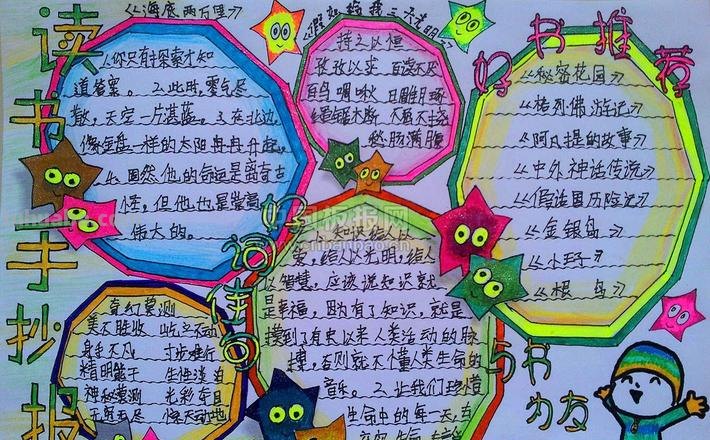 读书手抄报
《海底两万里》
1.你只有探索才知
道答案。2.此时,雾气尽
散,天空一片湛蓝。3.在北边,
像金盘一样的太阳冉冉升起。
4.固然,他的命运是离奇古
怪,但他也是崇高
伟大的。
《假如给我三天光明》
持之以恒
孜孜以求 百读不厌
百鸟啁啾
愁肠满腹
好书推荐
《秘密花园》
《格列佛游记》
《阿凡提的故事》
《中外神话传说》
《假话国历险记》
《金银岛》
《小王子》
《根鸟》
好词佳句
奇幻莫测
美不胜收 屹立不动
身手不凡 寸步难行
精明能干 生性淡泊
神秘莫测 光彩夺目
无穷无尽 惊天动地
1.知识给人以
爱,给人以光明,给人
以智慧,应该说知识就
是幸福,因为有了知识,就是
摸到了有史以来人类活动的脉
搏,否则就不懂人类生命的
音乐。2.让我们珍惜
生命中的每一天,
与书
为友